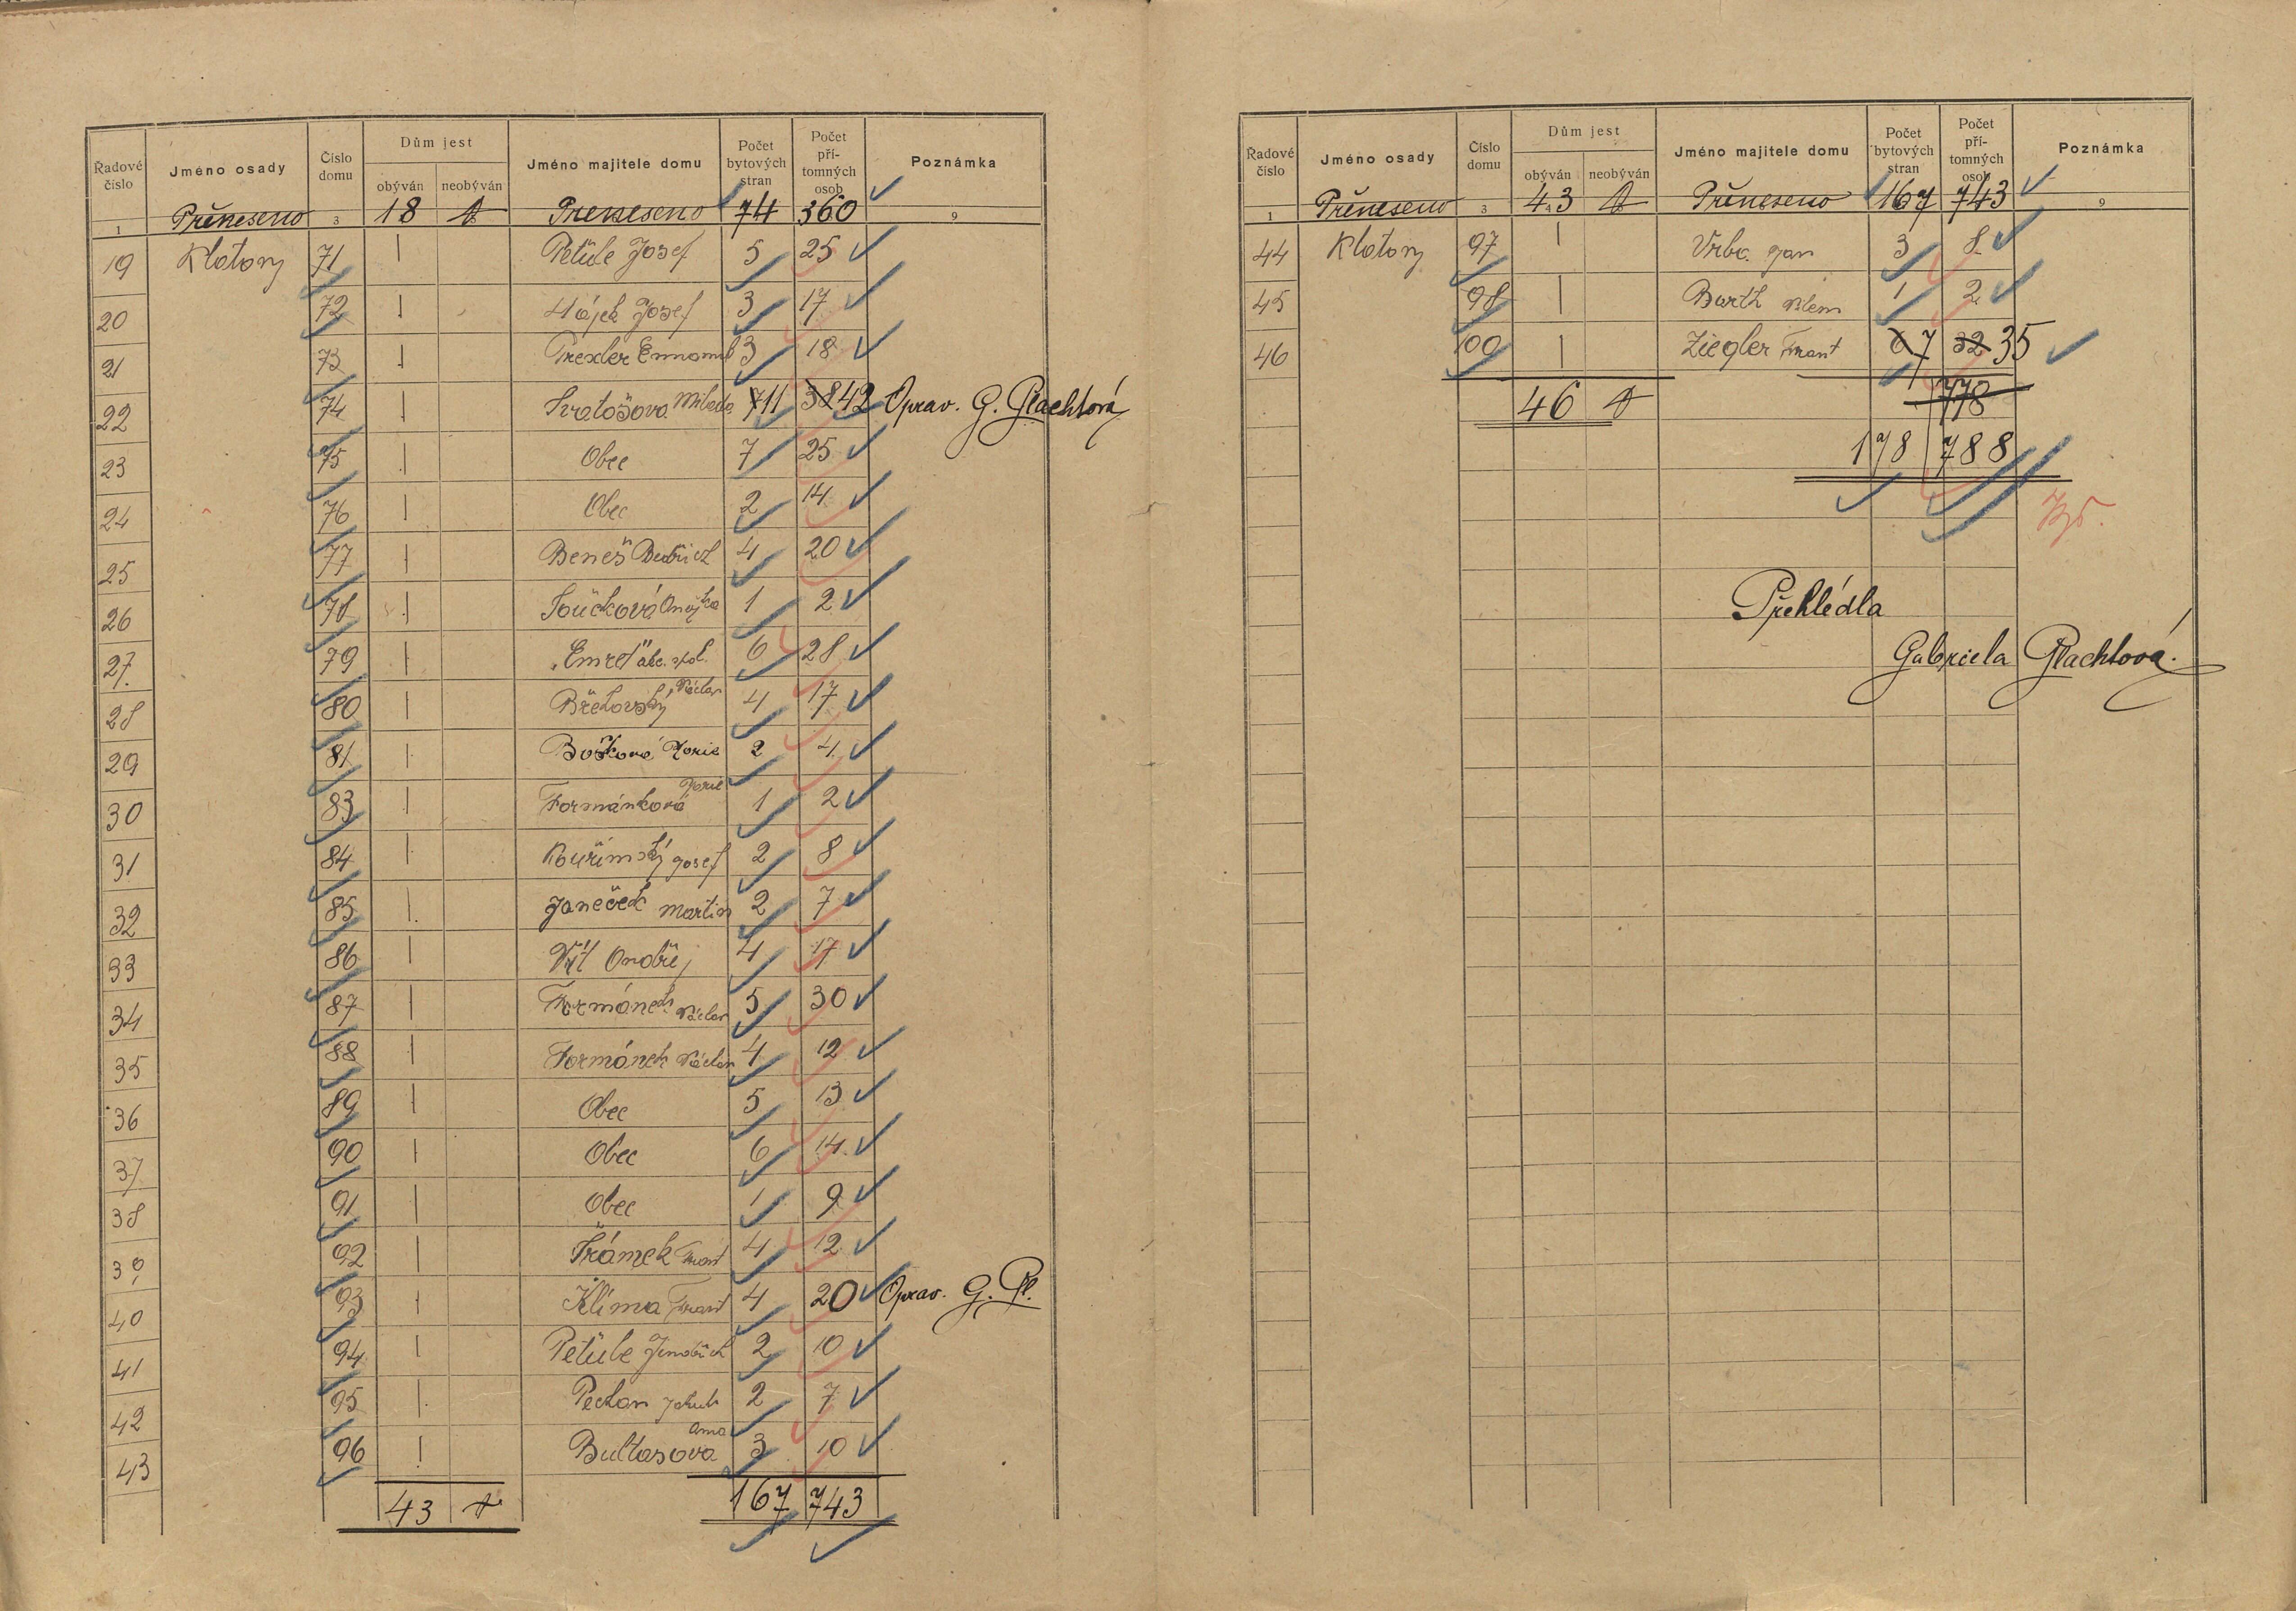 Řadové číslo | Jméno osady | Číslo domu | Dům jest obýván | neobýván | Jméno majitele domu | Počet bytových stran | Počet přítomných osob | Poznámka
1 | Přeneseno | 3 | 18 | | Přeneseno | 74 | 360 | 9
19 | Klatovy | 71 | 1 | | Petule Josef | 5 | 25
20 | | 72 | 1 | | Hájek Josef | 3 | 17
21 | | 73 | 1 | | 3 | 18
22 | | 74 | 1 | | Milada | 7 11 | 38 42 | Oprav. G. Plachtová
23 | | 75 | 1 | | Obec | 7 | 25
24 | | 76 | 1 | | Obec | 2 | 14
25 | | 77 | 1 | | Beneš Bedřich | 4 | 20
26 | | 78 | 1 | | Součková | 1 | 2
27. | | 79 | 1 | | 6 | 28
28 | | 80 | 1 | | Václav | 4 | 17
29 | | 81 | 1 | | 2 | 4
30 | | 83 | 1 | | Formánková | 1 | 2
31 | | 84 | 1 | | Kouřimský Josef | 2 | 8
32 | | 85 | 1 | | Janeček Martin | 2 | 7
33 | | 86 | 1 | | Ondřej | 4 | 17
34 | | 87 | 1 | | Formánek Václav | 5 | 30
35 | | 88 | 1 | | Formánek Václav | 4 | 12
36 | | 89 | 1 | | Obec | 5 | 13
37. | | 90 | 1 | | Obec | 6 | 14
38 | | 91 | 1 | | Obec | 1 | 9
39 | | 92 | 1 | | Frant | 4 | 12
40 | | 93 | 1 | | Klíma Frant | 4 | 20 | Oprav. G. Pl.
41 | | 94 | 1 | | Petule Jindřich | 2 | 10
42 | | 95 | 1 | | Jakub | 2 | 7
43 | | 96 | 1 | | Bultasova Anna | 3 | 10
43 | | 167 | 743
Řadové číslo | Jméno osady | Číslo domu | Dům jest obýván | neobýván | Jméno majitele domu | Počet bytových stran | Počet přítomných osob | Poznámka
1 | Přeneseno | 3 | 43 | | Přeneseno | 167 | 743 | 9
44 | Klatovy | 97 | 1 | | Vrba Jan | 3 | 8
45 | | 98 | 1 | | Barth | 1 | 2
46 | | 100 | 1 | | Ziegler Frant | 6 7 | 32 35
46 | | 778
178 | 788
Přehlédla
Gabriela Plachtová.